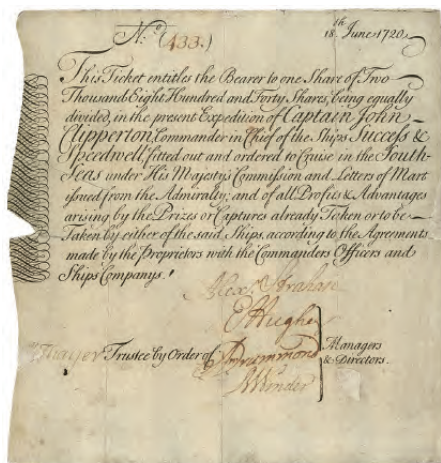 No. (433.)
18.th June 1720.
This Ticket entitles the Bearer to one Share of Two
Thousand Eight Hundred and Forty Shares, being equally
divided, in the present Expedition of Captain John
Clipperton Commander in Chief of the Ships Success &
Speedwell, fitted out and ordered to Cruise in the South-
Seas under His Majesty's Commission and Letters of Mart
issued from the Admiralty; and of all Profits & Advantages
arising by the Prizes or Captures already Taken or to be
Taken by either of the said Ships, according to the Agreements
made by the Proprietors with the Commanders Officers and
Ships Companys.
Alex. Strahan
E Hughes
Thayer Trustee by Order of Drummond Managers
& Directors.
Winder